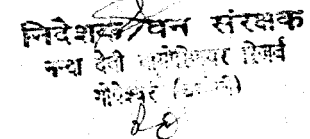 निदेशक/वन संरक्षक
नन्दा देवी बायोस्फियर रिजर्व
गोपेश्वर (चमोली)